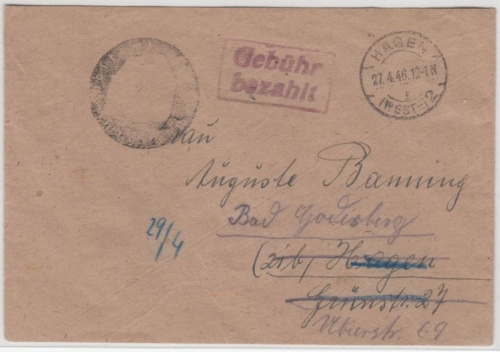 Gebühr
bezahlt
HAGEN
27.4.46.12-1N
(WESTF) 2
Frau
Auguste Banning
Bad Godesberg
29/4
(21b) Hagen
Grünstr. 27
Ubierstr. 69